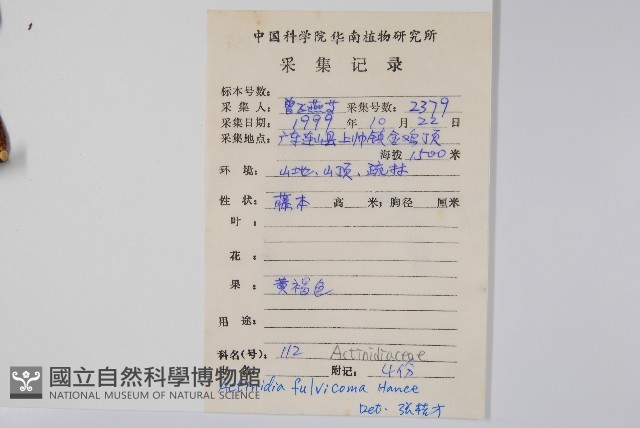 中国科学院华南植物研究所
采集记录
标本号数:
采集人: 曾飞燕等 采集号数: 2379
采集日期: 1999年10月22日
采集地点: 广东连山县上帅镇金鸡顶
海拨 1500 米
环境: 山地、山顶、疏林
性状: 藤本 高 米; 胸径 厘米
叶:
花:
果: 黄褐色
用途:
科名(号): 112 Actinidiaceae
附记: 4份
Actinidia fulvicoma Hance
Det.
國立自然科學博物館
NATIONAL MUSEUM OF NATURAL SCIENCE